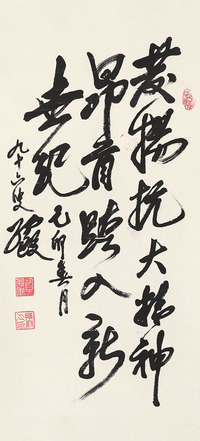 发扬抗大精神
昂首跨入新
世纪
己卯春月
九十六叟